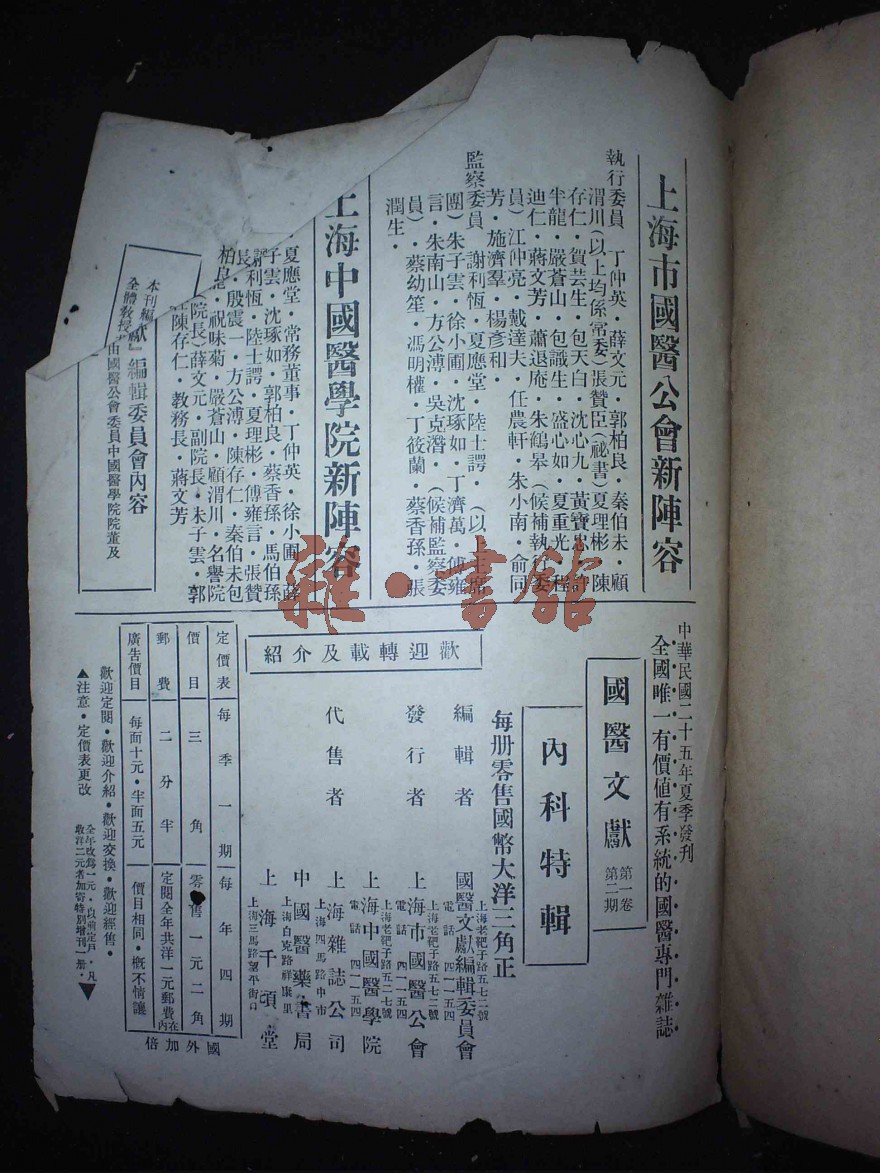 上海市國醫公會新陣容
執行委員 丁仲英・薛文元・郭柏良・秦伯未・顧
渭川(以上均係常委)張贊臣(秘書)夏理彬・陳
存仁・賀芸生・包天白・沈心九・黃寶忠・許
半龍・嚴蒼山・包識生・盛心如・夏重光・程
迪仁・蔣文芳・蕭退庵・朱鶴皋(候補執行委
員)江仲亮・戴達夫・任農軒・朱小南・俞同
芳・施濟羣・楊彥和・
監察委員 謝利恆・夏應堂・陸士諤・(以上主席
團)朱子雲・徐小圃・沈琢如・丁濟萬・傅雍
言・朱南山・方公溥・吳克潛・(候補監察委
員)・蔡幼笙・馮明權・丁筱蘭・蔡香孫・張
潤生・
上海中國醫學院新陣容
夏應堂・常務董事・丁仲英・徐小圃・薛
子雲・沈琢如・郭柏良・蔡香孫・馬伯孫
謝利恆・陸士諤・夏理彬・傅雍言・張贊
長・殷震一・方公溥・陳存仁・秦伯未包
柏良・祝味菊・嚴蒼山・顧渭川・名譽院
(院長)薛文元・副院長・朱子雲・郭
陳存仁・教務長・蔣文芳
獻』編輯委員會內容
本刊編
由國醫公會委員中國醫學院院董及
全體教授
中華民國二十五年夏季發刊
全國唯一有價值有系統的國醫專門雜誌
國醫文獻 第一卷 第二期
內科特輯
每册零售國幣大洋三角正
歡迎轉載及介紹
編輯者 國醫文獻編輯委員會
上海老靶子路五七二號
電話 四一一五四
發行者 上海市國醫公會
上海老靶子路五七二號
電話 四一一五四
上海中國醫學院
上海老靶子路五二七號
電話 四一一五四
代售者 上海雜誌公司
上海四馬路中市
中國醫藥書局
上海白克路祥康里
上海千頃堂
上海三馬路望平街口
定價表 每季一期 每年四期
價目 三角 零售一元二角
郵費 二分半 定閱全年共洋一元郵費在內
廣告價目 每面十元・半面五元 價目相同・概不情讓
國外加倍
歡迎定閱・歡迎介紹・歡迎交換・歡迎經售・
▲注意・定價表更改 全年改爲一元・以前定戶・凡
收洋二元者加寄特別增刊一册・▼
雜・書館